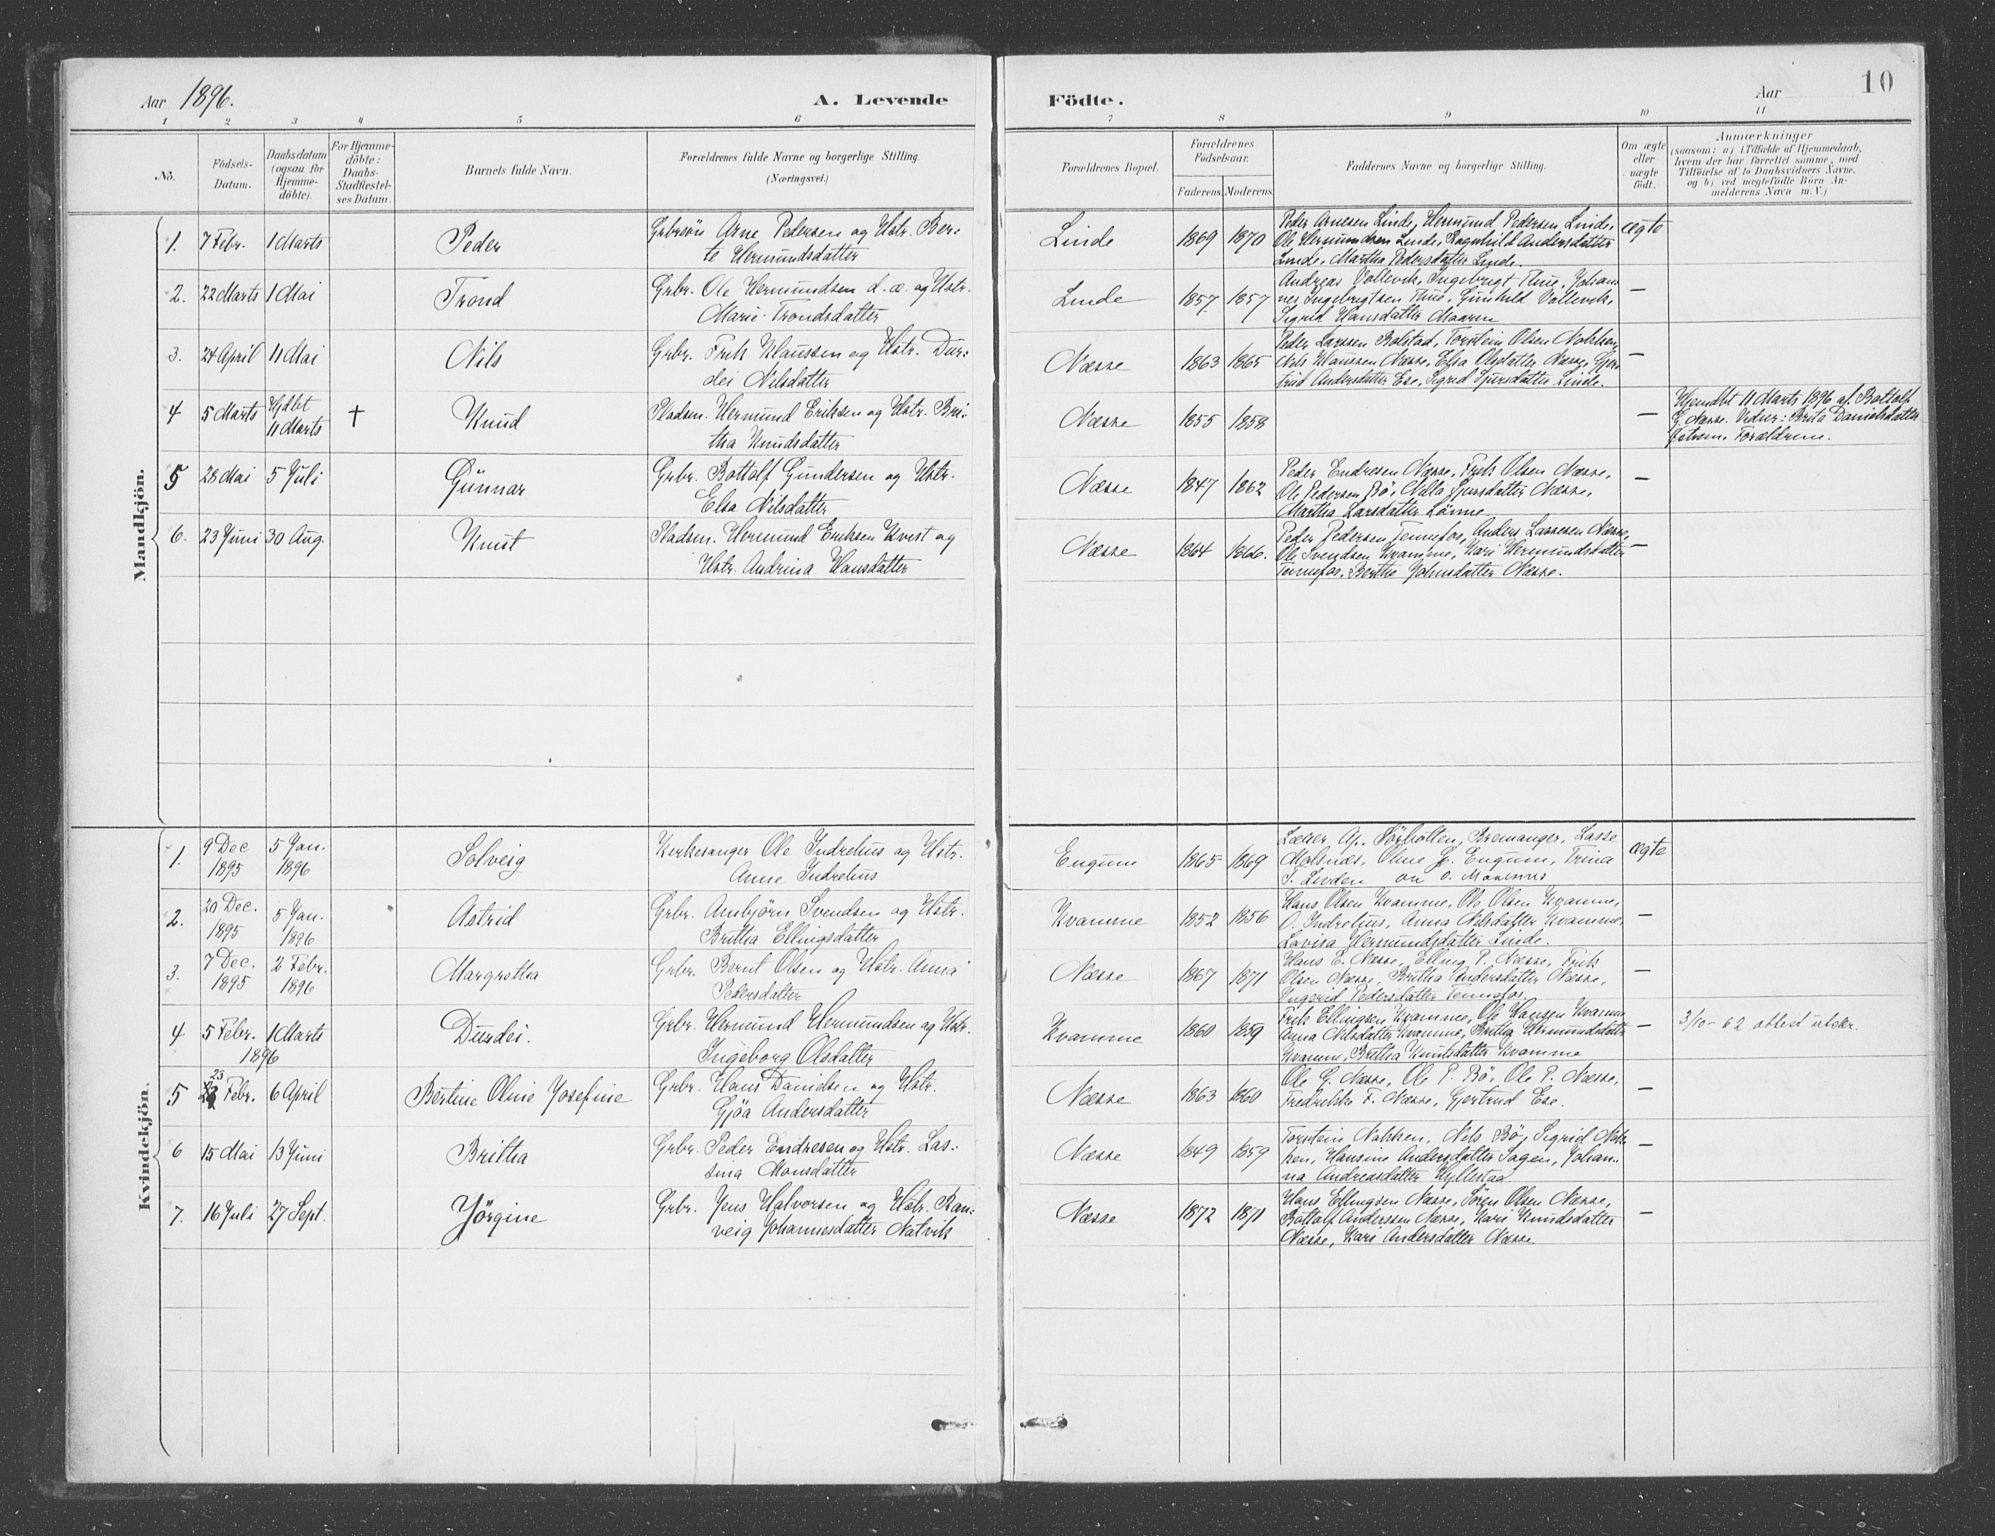 Aar 1896.
A. Levende Födte.
Aar
10
1 2 3 4 5 6 7 8 9 10 11
No.
Födsels-Datum.
Daabsdatum (ogsaa for Hjemme-döbte).
For Hjemme-döbte: Daabs-Stadfæstel-ses Datum.
Barnets fulde Navn.
Forældrenes fulde Navne og borgerlige Stilling. (Næringsvei.)
Forældrenes Bopæl.
Forældrenes Födselsaar.
Faderens. Moderens.
Faddernes Navne og borgerlige Stilling.
Om ægte eller uægte födt.
Anmærkninger
(saasom: a) i Tilfælde af Hjemmedaab, hvem der har forrettet samme, med Tilföielse af to Daabsvidners Navne, og b) ved uægtefödte Börn An-melderens Navn m. V.)
Mandkjön.
1. 7 Febr. 1 Marts Peder Grbrsön Arne Pedersen og Hstr. Ber-
te Hermundsdatter
Linde 1869 1870 Peder Arnesen Linde, Hermund Pedersen Linde,
Ole Hermundsen Linde, Ragnhild Andersdatter
Linde, Martha Pedersdatter Linde.
ægte
2. 22 Marts 1 Mai Trond Grbr. Ole Hermundsen d. æ. og Hstr.
Marie Trondsdatter
Linde 1857 1857 Andreas Vallevik, Ingebrigt Thue, Johan-
nes Ingebrigtsen Thue, Gunhild Vallevik,
Sigrid Hansdatter Maaren
—
3. 24 April 11 Mai Nils Grbr. Frik Klaussen og Hstr. Dur-
dei Nilsdatter
Næsse 1863 1865 Peder Larssen Bolstad, Torstein Olsen Nokken,
Nils Klaussen Næsse, Elsa Olsdatter Næsse, Gjer-
trud Andersdatter Ese, Sigrid Sjursdatter Linde.
—
4 5 Marts Hjdbt 11 Marts † Knud Pladsm. Hermund Eriksen og Hstr. Bri-
tha Knudsdatter
Næsse 1855 1858
—
Hjemdbt 11 Marts 1896 af Bottolf
G. Næsse. Vidner: Brita Danielsdatter
Forældrene.
5 28 Mai 5 Juli Gunnar Grbr. Bottolf Gundersen og Hstr.
Elsa Nilsdatter
Næsse 1847 1862 Peder Endresen Næsse, Frik Olsen Næsse,
Ole Pedersen Bö, Nilla Sjursdatter Næsse,
Martha Larsdatter Lönne.
—
6. 23 Juni 30 Aug. Knut Pladsm. Hermund Eriksen Kvest og
Hstr. Andrina Hansdatter
Næsse 1864 1866. Peder Pedersen Tennefos, Anders Lassesen Næsse,
Ole Svendsen Kvamme, Kari Hermundsdatter
Tennefos, Berthe Johnsdatter Næsse.
—
Kvindekjön.
1. 9 Dec 1895 5 Jan. 1896 Solveig Kirkesanger Ole Indrelius og Hstr.
Anne Indrelius
Engum 1865 1869 Lærer Ap. Sörbotten, Bremanger, Lasse
Molsnæs, Oline E. Engum, Trina
S. Linden
ægte
2. 20 Dec. 1895 5 Jan. 1896 Astrid Grbr. Ansbjörn Svendsen og Hstr.
Britha Ellingsdatter
Kvamme 1852 1856 Hans Olsen Kvamme, Ole Olsen Kvamme,
O. Indrelius, Anna Nilsdatter Kvamme,
Lovisa Hermundsdatter Linde.
—
3. 7 Dec. 1895 2 Febr. 1896 Margretha Grbr. Bernt Olsen og Hstr. Anna
Pedersdatter
Næsse 1867 1871 Hans E. Næsse, Elling P. Næsse, Frik
Olsen Næsse, Britha Andersdatter Næsse,
Ingerid Pedersdatter Tennefos.
—
4 5 Febr. 1 Marts 1896 Durdei. Grbr. Hermund Hermundsen og Hstr.
Ingeborg Olsdatter
Kvamme 1860 1859 Frik Ellingsen Kvamme, Ole Hansen Kvamme
Anna Nilsdatter Kvamme, Britha Hermundsdatter
Kvamme, Britha Knutsdatter Kvamme
—
3/10-62 attest utskr.
5 23 Febr. 6 April Bertine Oline Josefine Grbr. Hans Danielsen og Hstr.
Gjöa Andersdatter
Næsse 1863 1860 Ole G. Næsse, Ole P. Bö, Ole P. Næsse,
Fredrikke F. Næsse, Gjertrud Ese.
—
6 15 Mai 13 Juni Britha Grbr. Peder Endresen og Hstr. Las-
sina Monsdatter
Næsse 1849 1859 Torstein Nokken, Nils Bö, Sigrid Nok-
ken, Hansine Andersdatter Sagen, Johan-
na Andreasdatter Hyllestad
—
7. 16 Juli 27 Sept. Jörgine Grbr. Jens Halvorsen og Hstr. Ran-
veig Johannesdatter Natvik
Næsse 1872 1871 Hans Ellingsen Næsse, Sören Olsen Næsse,
Bottolf Anderssen Næsse, Kari Knudsdatter
Næsse, Kari Andersdatter Næsse
—